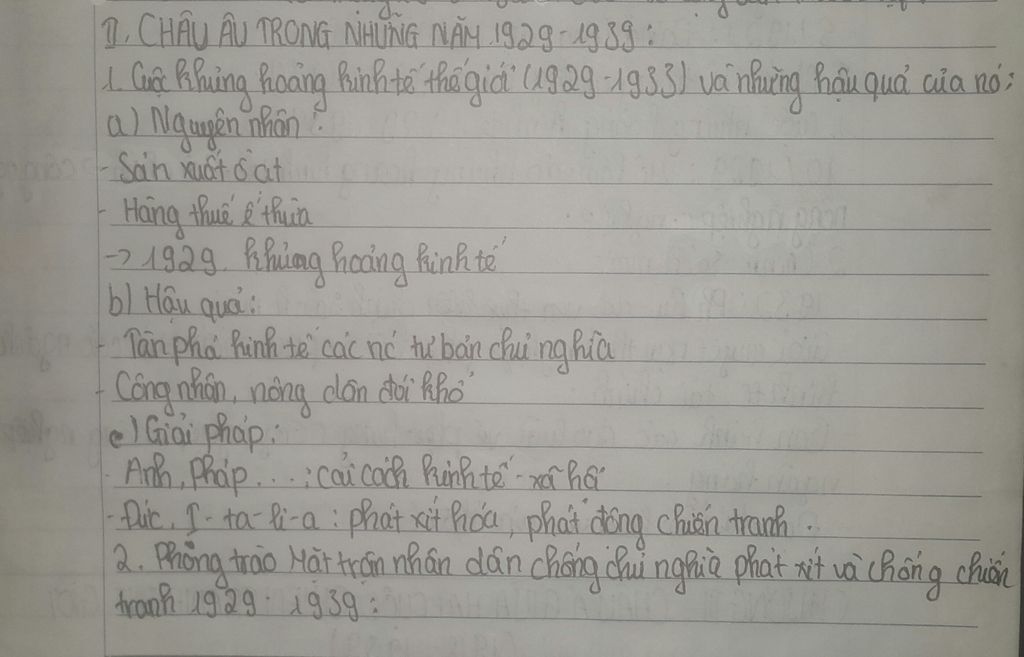 II. CHÂU ÂU TRONG NHỮNG NĂM 1929-1939:
1. Cuộc khủng hoảng kinh tế thế giới (1929-1933) và những hậu quả của nó:
a) Nguyên nhân:
- Sản xuất ồ ạt
- Hàng thuế ế thừa
-> 1929 khủng hoảng kinh tế
b) Hậu quả:
- Tàn phá kinh tế các nc tư bản chủ nghĩa
- Công nhân, nông dân đói khổ
c) Giải pháp:
- Anh, Pháp...: cải cách kinh tế - xã hội
- Đức, I-ta-li-a: phát xít hóa, phát động chiến tranh.
2. Phong trào Mặt trận nhân dân chống chủ nghĩa phát xít và chống chiến
tranh 1929-1939: